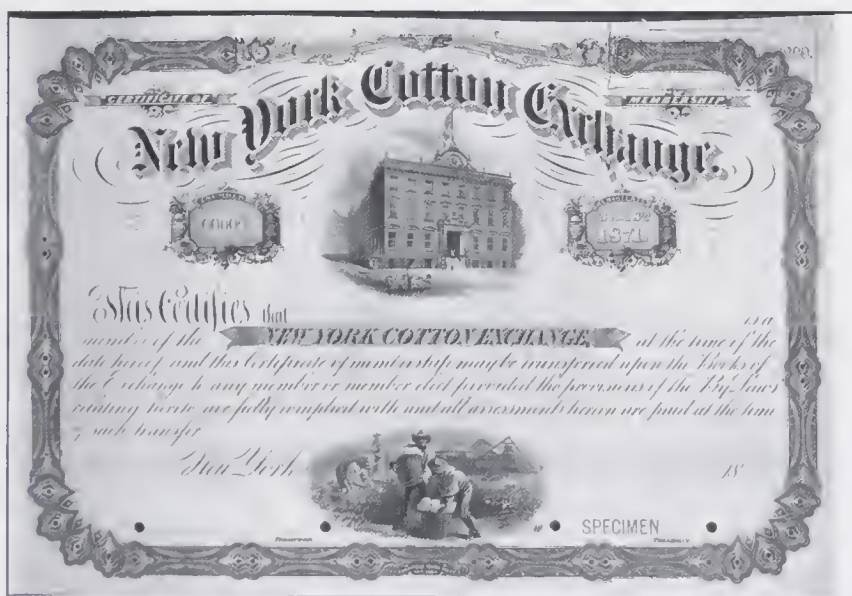 CERTIFICATE OF MEMBERSHIP
New York Cotton Exchange.
1871
This Certifies that is a
member of the NEW YORK COTTON EXCHANGE at the time of the
date hereof and this Certificate of membership may be transferred upon the Books of
the Exchange to any member or member elect provided the provisions of the By-Laws
relating hereto are fully complied with and all assessments hereon are paid at the time
of such transfer
New York 18
SPECIMEN
TREASURER